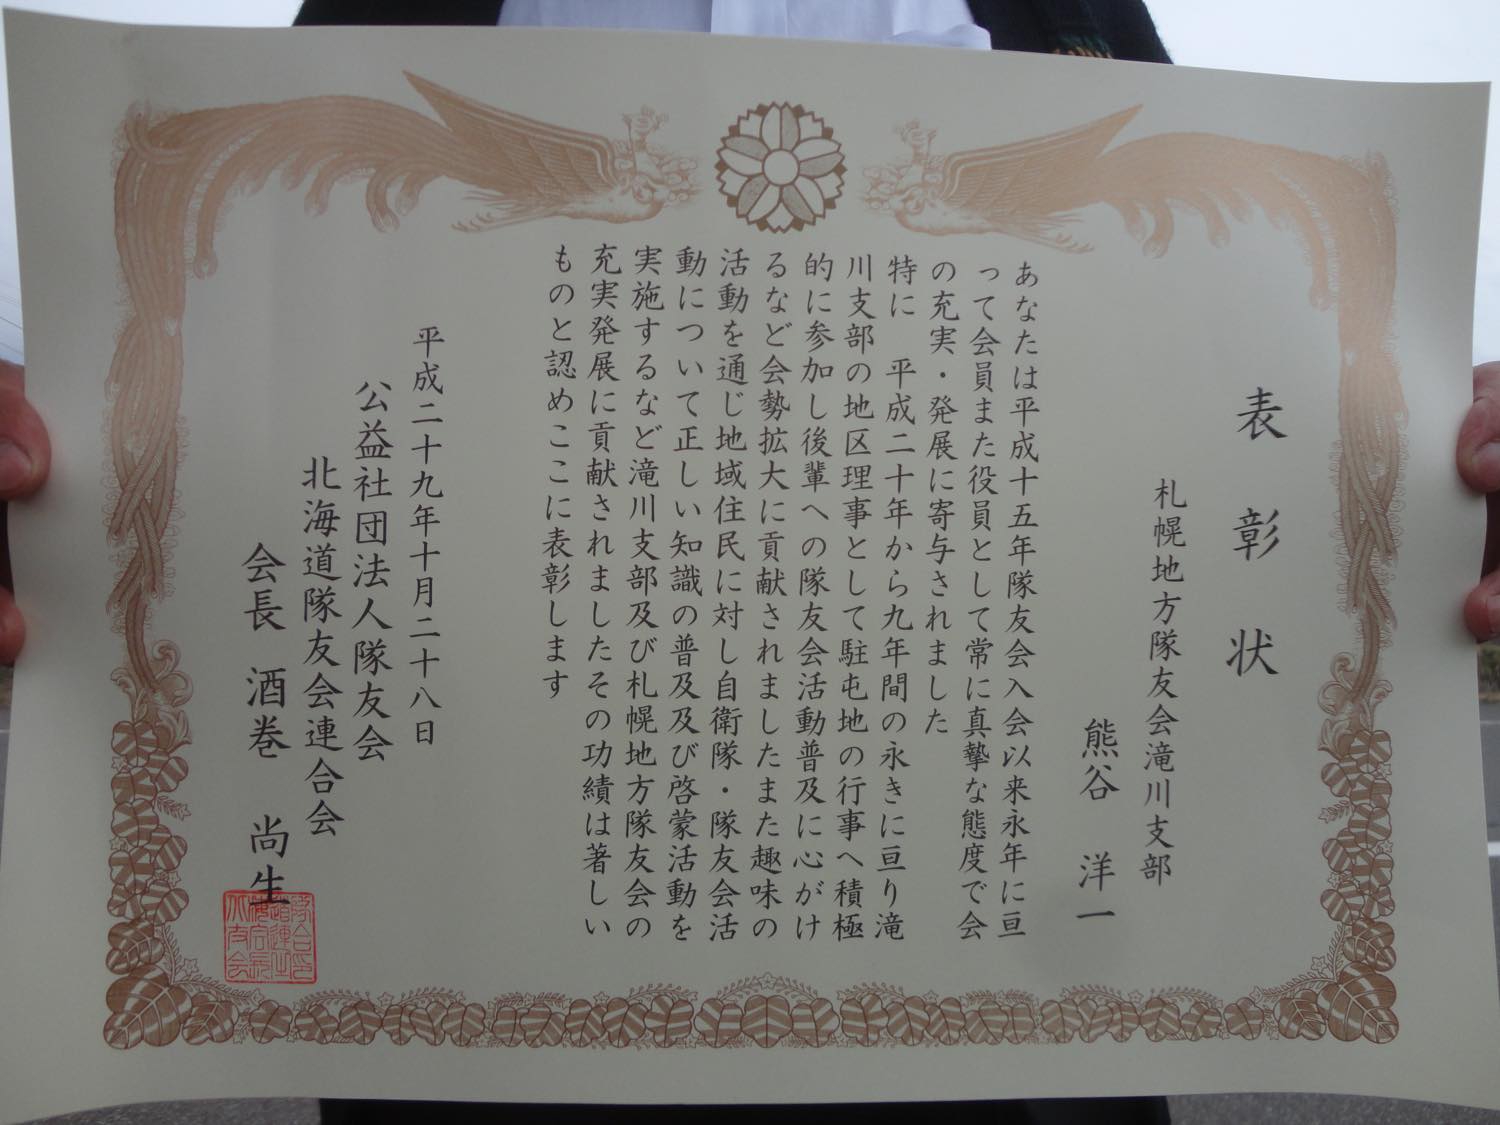 表彰状
札幌地方隊友会滝川支部
熊谷 洋一
あなたは平成十五年隊友会入会以来永年に亘
って会員また役員として常に真摯な態度で会
の充実・発展に寄与されました
特に 平成二十年から九年間の永きに亘り滝
川支部の地区理事として駐屯地の行事へ積極
的に参加し後輩への隊友会活動普及に心がけ
るなど会勢拡大に貢献されましたまた趣味の
活動を通じ地域住民に対し自衛隊・隊友会活
動について正しい知識の普及及び啓蒙活動を
実施するなど滝川支部及び札幌地方隊友会の
充実発展に貢献されましたその功績は著しい
ものと認めここに表彰します
平成二十九年十月二十八日
公益社団法人隊友会
北海道隊友会連合会
会長 酒巻 尚生